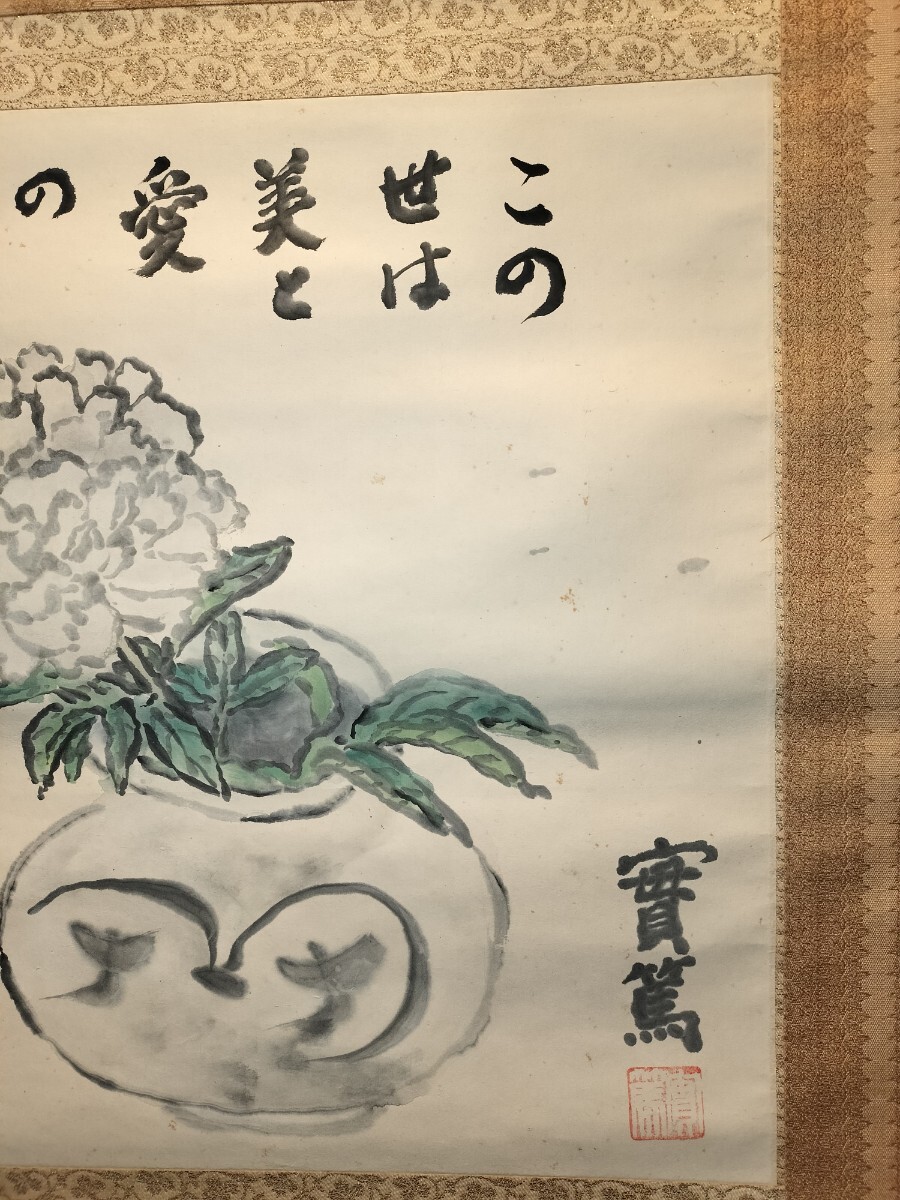 この
世は
美と
愛
の
實篤
實篤